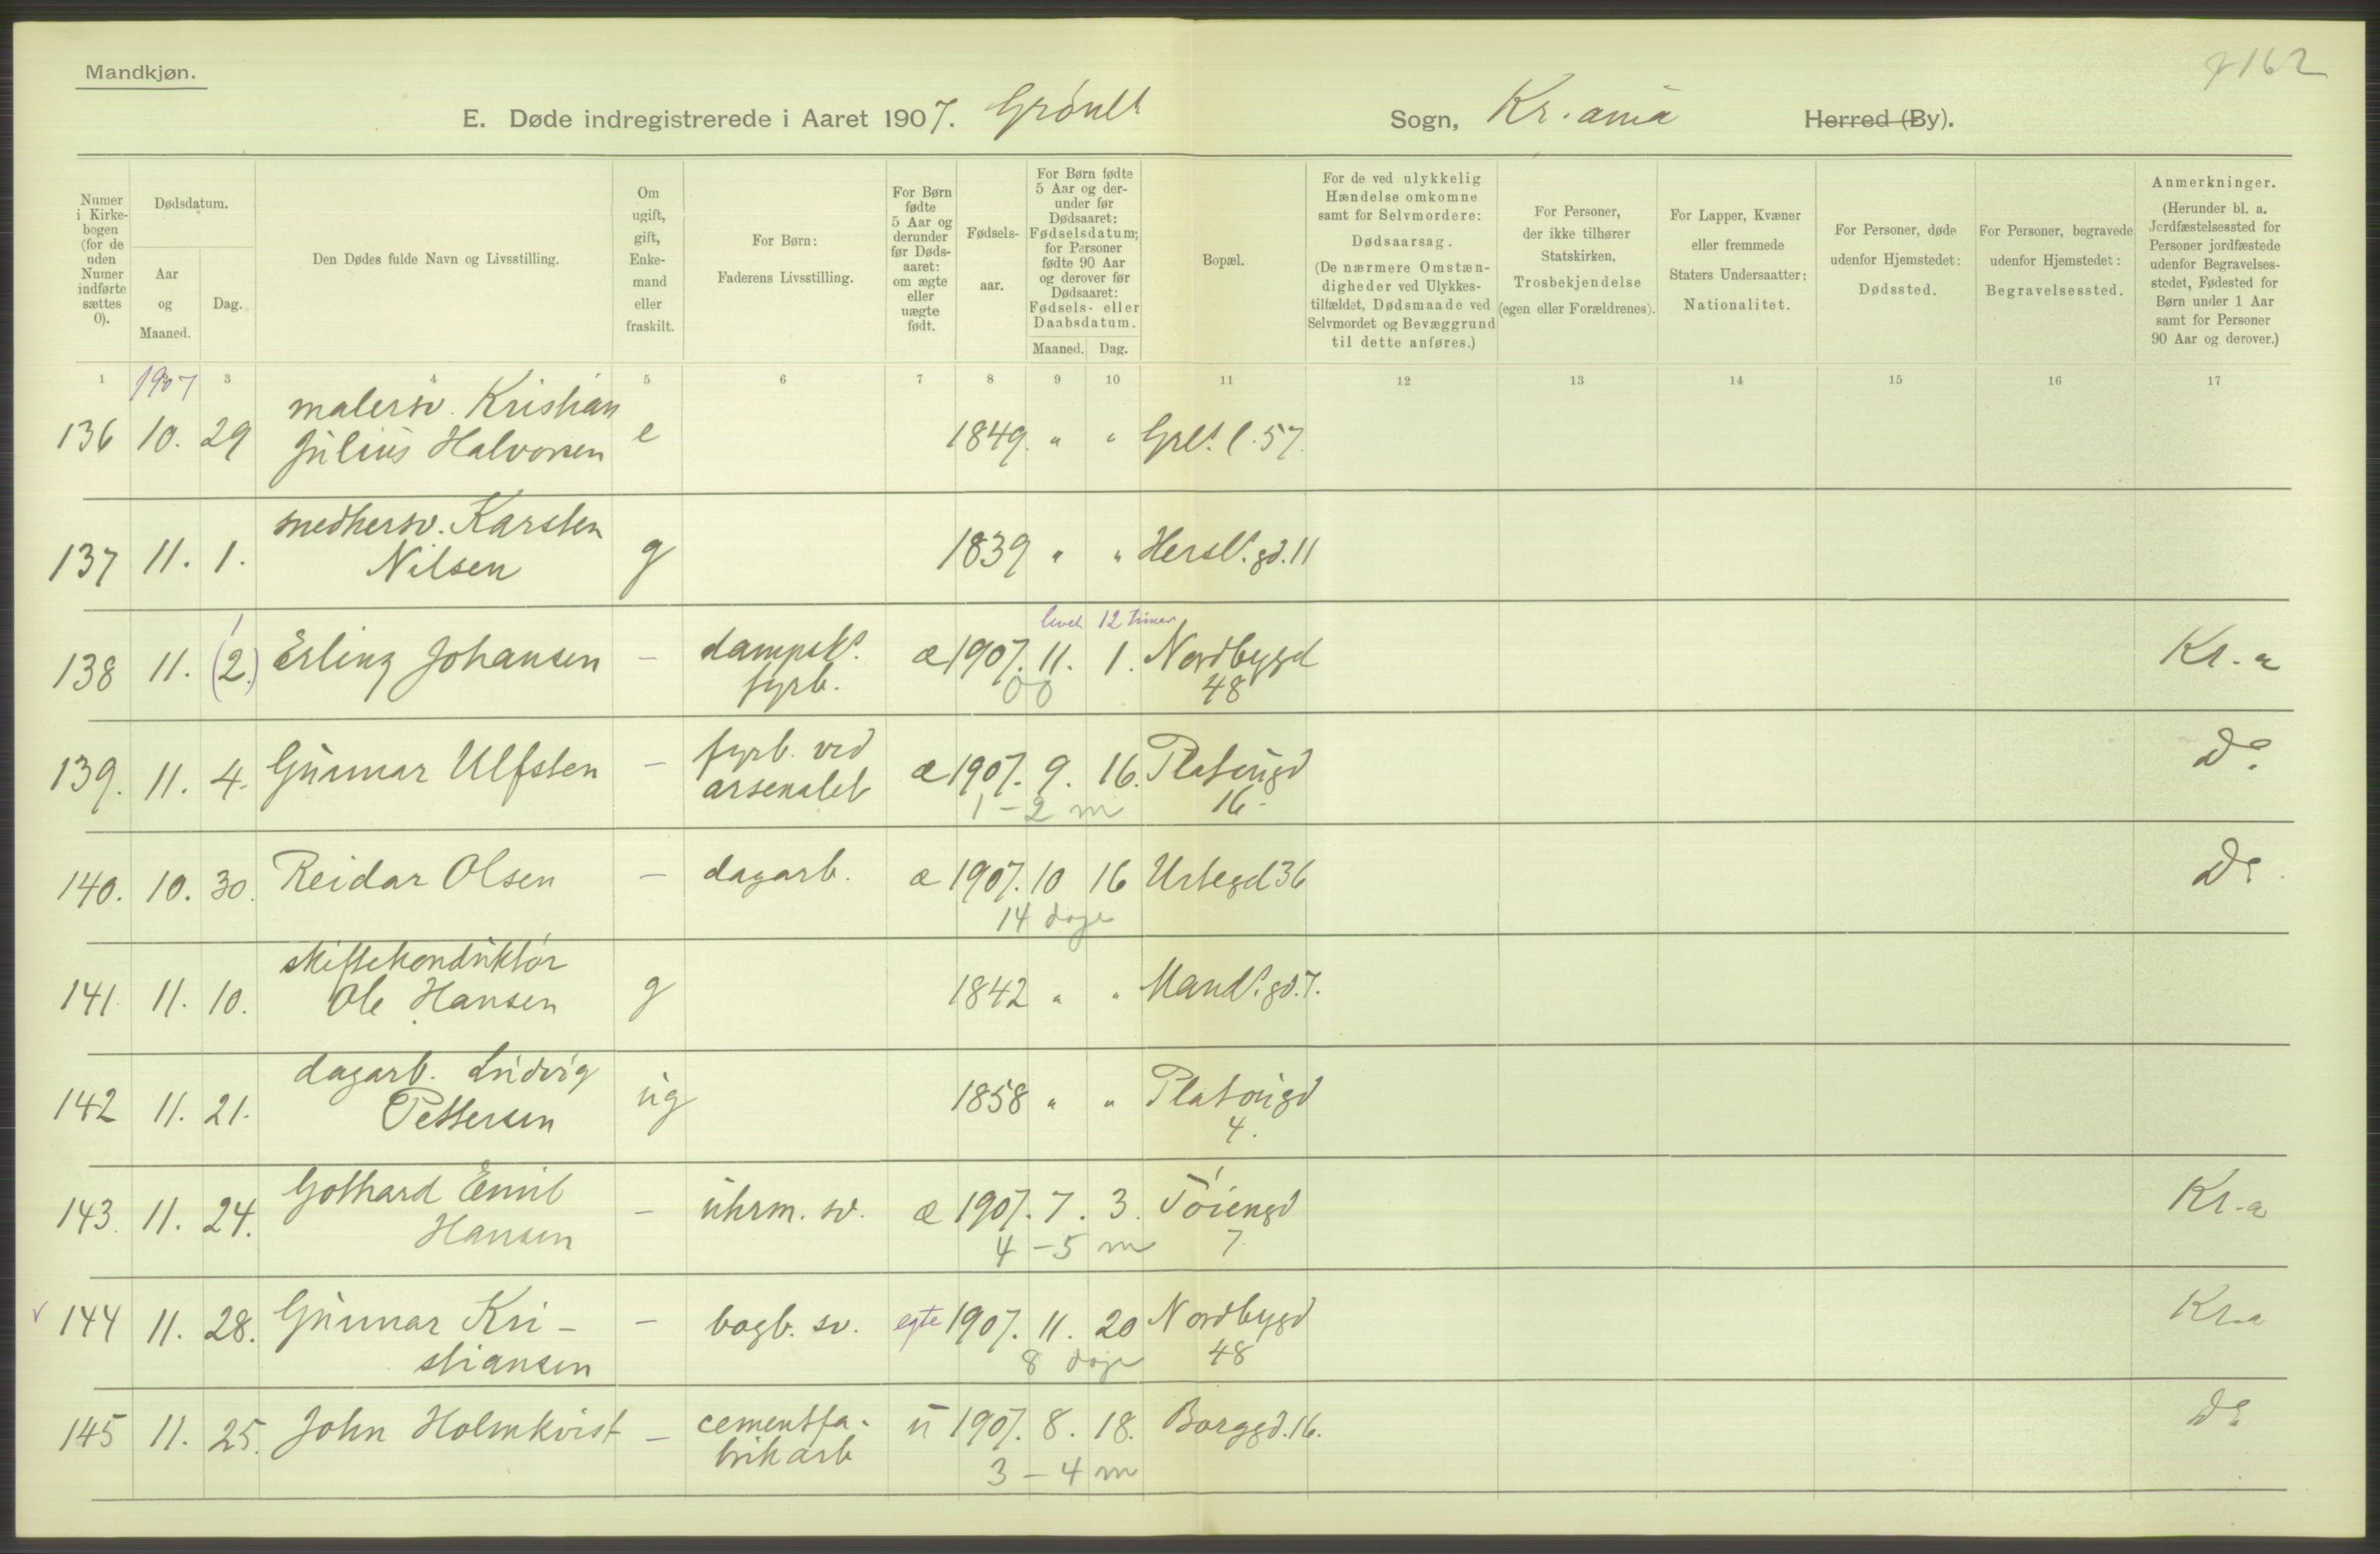 Mandkjøn.
162
E. Døde indregistrerede i Aaret 1907. Grønl. Sogn, Kr.ania Herred (By).
Numer i Kirkebogen (for de uden Numer indførte sættes 0).
Dødsdatum.
Aar og Maaned.
Dag.
Den Dødes fulde Navn og Livsstilling.
Om ugift, gift, Enkemand eller fraskilt.
For Børn:
Faderens Livsstilling.
For Børn fødte 5 Aar og derunder før Dødsaaret: om ægte eller uægte født.
Fødselsaar.
For Børn fødte 5 Aar og derunder før Dødsaaret: Fødselsdatum; for Personer fødte 90 Aar og derover før Dødsaaret: Fødsels- eller Daabsdatum.
Maaned. Dag.
Bopæl.
For de ved ulykkelig Hændelse omkomne samt for Selvmordere: Dødsaarsag. (De nærmere Omstændigheder ved Ulykkestilfældet, Dødsmaade ved Selvmordet og Bevæggrund til dette anføres.)
For Personer, der ikke tilhører Statskirken, Trosbekjendelse (egen eller Forældrenes).
For Lapper, Kvæner eller fremmede Staters Undersaatter: Nationalitet.
For Personer, døde udenfor Hjemstedet: Dødssted.
For Personer, begravede udenfor Hjemstedet: Begravelsessted.
Anmerkninger. (Herunder bl. a. Jordfæstelsessted for Personer jordfæstede udenfor Begravelsesstedet, Fødested for Børn under 1 Aar samt for Personer 90 Aar og derover.)
1 1907 3 4 5 6 7 8 9 10 11 12 13 14 15 16 17
malersv. Kristian
136 10. 29 Julius Halvorsen e 1849. " " Grl. l. 57.
smedhersv. Karsten
137 11. 1. Nilsen g 1839 " " Hersl. gd. 11
1 levet 12 timer
138 11. (2.) Erling Johansen – dampsk. æ 1907. 11. 1. Nordbygd Kr.a
fyrb. 00 48
139. 11. 4. Gunnar Ulfsten – fyrb. ved æ 1907. 9. 16. Platougd Do.
arsenalet 1 – 2 m 16.
140. 10. 30. Reidar Olsen – dagarb. æ 1907. 10 16 Urtegd 36 Do.
14 dage
skiftekonduktør
141. 11. 10. Ole Hansen g 1842 " " Mand. gd. 7.
dagarb. Ludvig
142 11. 21. Pettersen ug 1858 " " Platougd
4.
143. 11. 24. Gothard Emil – uhrm. sv. æ 1907. 7. 3. Tøiengd Kr.a
Hansen 4 – 5 m 7
144 11. 28. Gunnar Kri- – bogb. sv. egte 1907. 11. 20 Nordbygd Kr.a
stiansen 8 dage 48
145 11. 25. John Holmkvist – cementfa- u 1907. 8. 18. Borggd. 16. Do.
brikarb 3 – 4 m